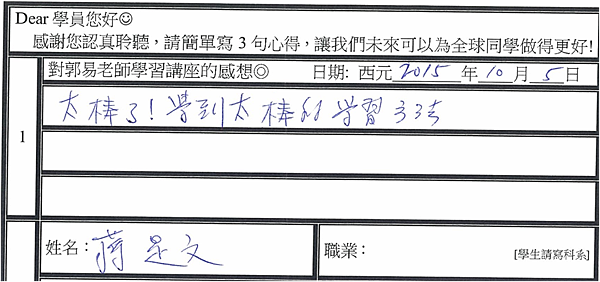 Dear 學員您好☺
感謝您認真聆聽，請簡單寫 3 句心得，讓我們未來可以為全球同學做得更好!
對郭易老師學習講座的感想◎ 日期: 西元 2015 年 10 月 5 日
1
太棒了!學到太棒的學習方法
姓名： 蔣是文
職業： [學生請寫科系]